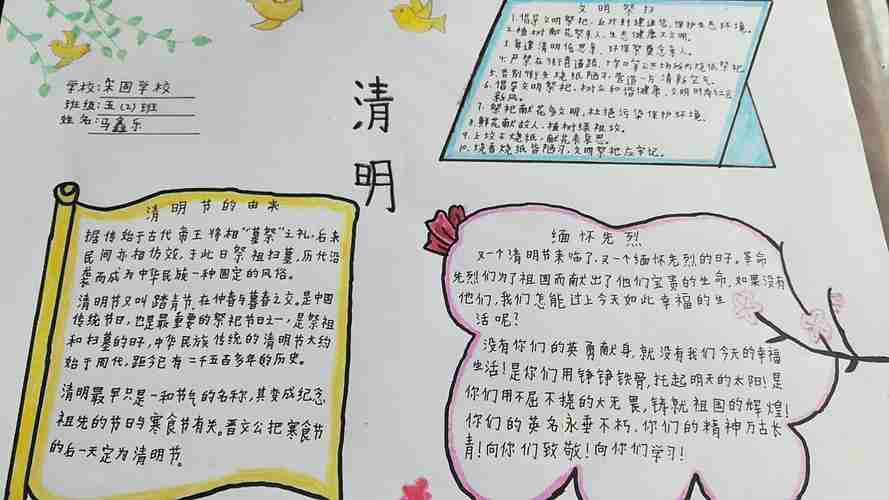 学校:宋固学校
班级:五(2)班
姓名:马鑫乐
清明
文明祭扫
1.倡导文明祭祀,反对封建迷信,保护生态环境。
2.植树献花祭亲人,生态健康又文明。
3.每逢清明倍思亲,环保祭奠念亲人。
4.严禁在街巷道路、十字口等公共场所内烧纸祭祀
5.告别街头烧纸陋习,营造一片清新空气。
6.倡导文明祭祀,树立和谐健康、文明时尚社会
新风。
7.祭祀献花多文明,杜绝污染保护环境。
8.鲜花献故人,植树绿祖坟。
9.上坟不烧纸,献花表哀思。
10.烧香烧纸皆陋习,文明祭祀应牢记。
清明节的由来
据传始于古代帝王将相“墓祭”之礼,后来
民间亦相仿效,于此日祭祖扫墓,历代沿
袭而成为中华民族一种固定的风俗。
清明节又叫踏青节,在仲春与暮春之交。是中国
传统节日,也是最重要的祭祀节日之一,是祭祖
和扫墓的日子,中华民族传统的清明节大约
始于周代,距今已有二千五百多年的历史。
清明最早只是一种节气的名称,其变成纪念
祖先的节日与寒食节有关。晋文公把寒食节
的后一天定为清明节。
缅怀先烈
又一个清明节来临了,又一个缅怀先烈的日子。革命
先烈们为了祖国而献出了他们宝贵的生命,如果没有
他们,我们怎能过上今天如此幸福的生
活呢?
没有你们的英勇献身,就没有我们今天的幸福
生活!是你们用铮铮铁骨,托起明天的太阳!是
你们用不屈不挠的大无畏,铸就祖国的辉煌!
你们的英名永垂不朽,你们的精神万古长
青!向你们致敬!向你们学习!